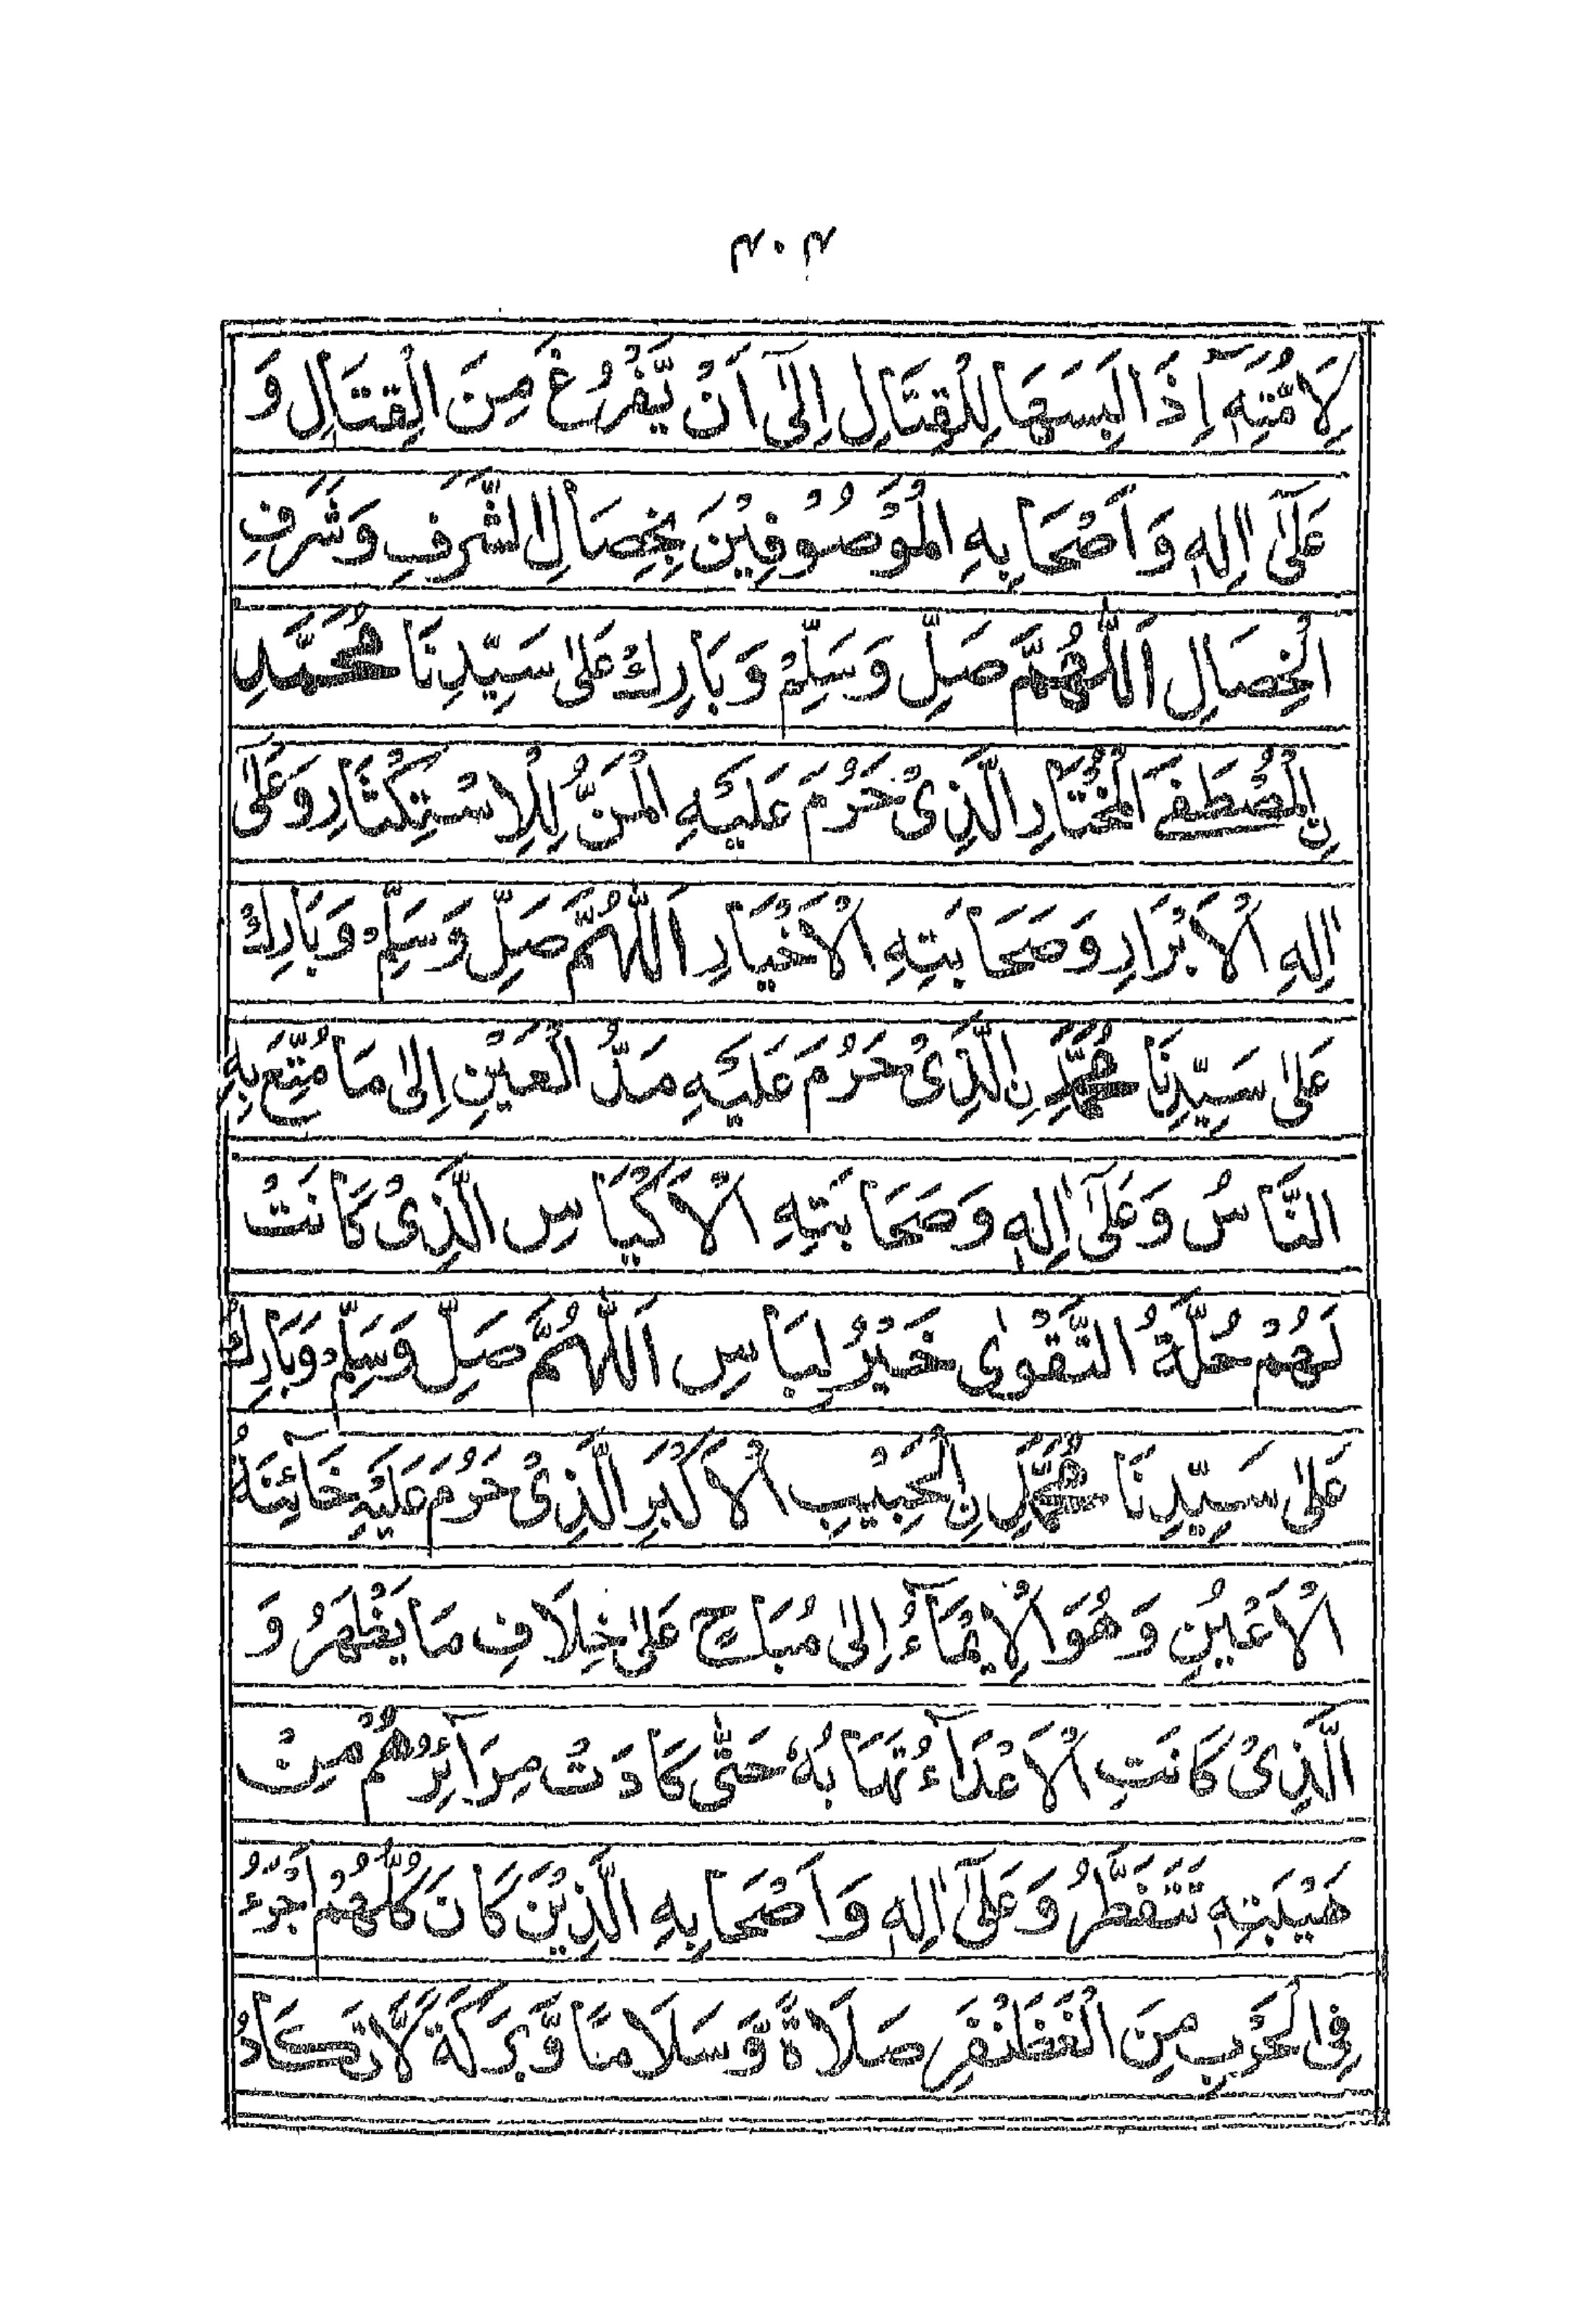 ٣٠٣
لِاَمَّتِهٖٓ اِذَا لَبِسَهَا لِلْقِتَالِ اِلٰٓى اَنْ يَّفْرُغَ مِنَ الْقِتَالِ وَ
عَلٰٓى اٰلِهٖ وَاَصْحَابِهِ الْمَوْصُوْفِيْنَ بِخِصَالِ الشَّرَفِ وَشَرَفِ
الْخِصَالِ اَللّٰهُمَّ صَلِّ وَسَلِّمْ وَبَارِكْ عَلٰى سَيِّدِنَا مُحَمَّدِ
نِ الْمُصْطَفَى الْمُخْتَارِ الَّذِىْ حَرُمَ عَلَيْهِ الْمَنُّ لِلْاِسْتِكْثَارِ وَعَلٰٓى
اٰلِهِ الْاَبْرَارِ وَصَحَابَتِهِ الْاَخْيَارِ اَللّٰهُمَّ صَلِّ وَسَلِّمْ وَبَارِكْ
عَلٰى سَيِّدِنَا مُحَمَّدِ نِ الَّذِىْ حَرُمَ عَلَيْهِ مَدُّ الْعَيْنِ اِلٰى مَا مُتِّعَ بِهِ
النَّاسُ وَعَلٰٓى اٰلِهٖ وَصَحَابَتِهِ الْاَكْيَاسِ الَّذِىْ كَانَتْ
لَهُمْ حُلَّةُ التَّقْوٰى خَيْرُ لِبَاسِ اَللّٰهُمَّ صَلِّ وَسَلِّمْ وَبَارِكْ
عَلٰى سَيِّدِنَا مُحَمَّدِ نِ الْحَبِيْبِ الْاَكْبَرِ الَّذِىْ حَرُمَ عَلَيْهِ خَآئِنَةُ
الْاَعْيُنِ وَهُوَ الْاِيْمَآءُ اِلٰى مُبَاحٍ عَلٰى خِلَافِ مَا يَظْهَرُ وَ
الَّذِىْ كَانَتِ الْاَعْدَآءُ تَهَابُهٗ حَتّٰى كَادَتْ مِرَآئِرُهُمْ مِنْ
هَيْبَتِهٖ تَتَفَطَّرُ وَعَلٰٓى اٰلِهٖ وَاَصْحَابِهِ الَّذِيْنَ كَانَ كُلُّهُمْ اَجْرَءُ
فِى الْحَرْبِ مِنَ الْغَظَنْفَرِ صَلَاةً وَّسَلَامًا وَّبَرَكَةً لَّا تَكَادُ